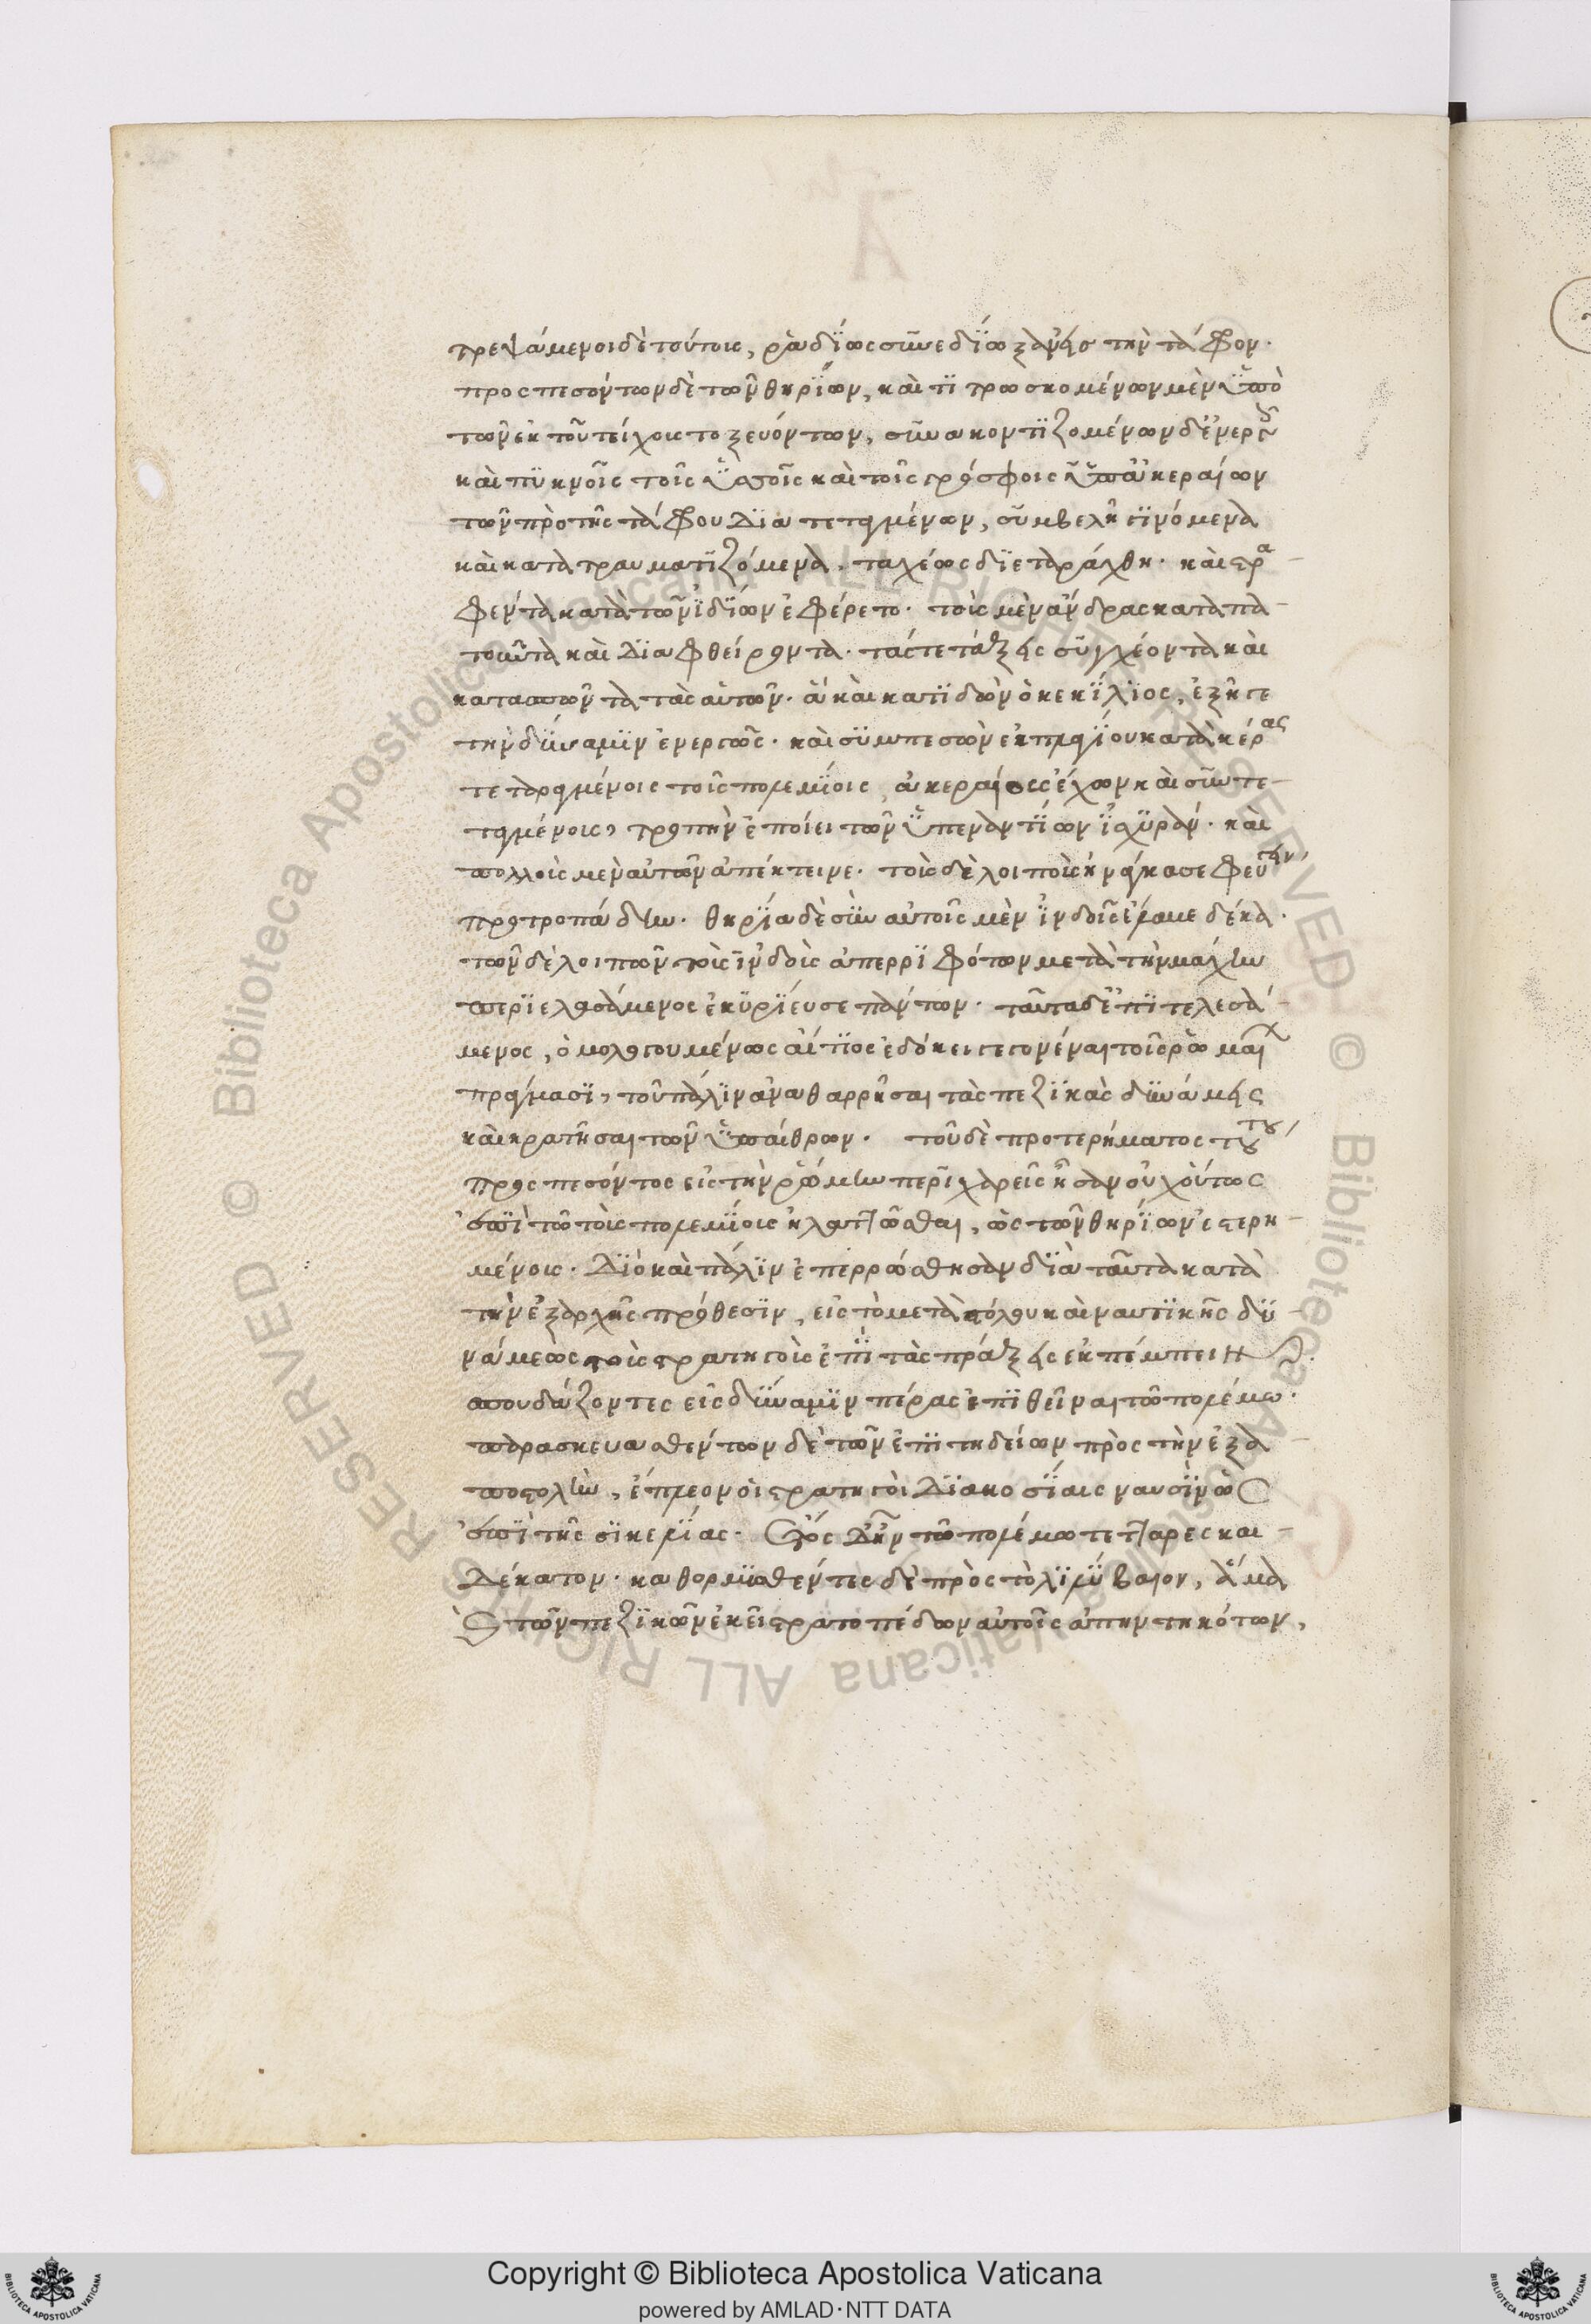 τρεψάμενοι δὲ τούτους, ῥαδίως συνεδίωξαν εἰς τὴν τάφρον.
προσπεσόντων δὲ τῶν θηρίων, καὶ τιτρωσκομένων μὲν ὑπὸ
τῶν ἐκ τοῦ τείχους τοξευόντων, συνακοντιζομένων δ' ἐνεργοῖς
καὶ πυκνοῖς τοῖς ὑσσοῖς καὶ τοῖς γρόσφοις ὑπ' ἀκεραίων
τῶν πρὸ τῆς τάφρου διατεταγμένων, συμβελῆ γινόμενα
καὶ κατατραυματιζόμενα, ταχέως διεταράχθη. καὶ στρα-
φέντα κατὰ τῶν ἰδίων ἐφέρετο. τοὺς μὲν ἄνδρας καταπα-
τοῦντα καὶ διαφθείροντα. τὰς τε τάξεις συγχέοντα καὶ
κατασπῶντα τὰς αὐτῶν. ἃ καὶ κατιδὼν ὁ κεκίλιος, ἐξῆγε
τὴν δύναμιν ἐνεργῶς. καὶ συμπεσὼν ἐκ πλαγίου κατὰ κέρας
τεταραγμένοις τοῖς πολεμίοις, ἀκεραίους ἔχων καὶ συντε-
ταγμένους, τροπὴν ἐποίει τῶν ὑπεναντίων ἰσχυράν. καὶ
πολλοὺς μὲν αὐτῶν ἀπέκτεινε. τοὺς δὲ λοιποὺς ἠνάγκασε φεύγειν
προτροπάδην. θηρία δὲ σὺν αὐτοῖς μὲν ἰνδοῖς ἔλαβε δέκα.
τῶν δὲ λοιπῶν τοὺς ἰνδοὺς ἀπερριφότων μετὰ τὴν μάχην
περιελασάμενος ἐκυρίευσε πάντων. ταῦτα δ' ἐπιτελεσά-
μενος, ὁμολογουμένως αἴτιος ἐδόκει γεγονέναι τοῖς ῥωμαίων
πράγμασι, τοῦ πάλιν ἀναθαρρῆσαι τὰς πεζικὰς δυνάμεις
καὶ κρατῆσαι τῶν ὑπαίθρων. τοῦ δὲ προτερήματος τούτου
προσπεσόντος εἰς τὴν ῥώμην περιχαρεῖς ἦσαν οὐχ οὕτως
ἐπὶ τῷ τοὺς πολεμίους ἠλαττῶσθαι, ὡς τῶν θηρίων ἐστερη-
μένους. διὸ καὶ πάλιν ἐπερρώσθησαν διὰ ταῦτα κατὰ
τὴν ἐξ ἀρχῆς πρόθεσιν, εἰς τὸ μετὰ στόλου καὶ ναυτικῆς δυ-
νάμεως τοὺς στρατηγοὺς ἐπὶ τὰς πράξεις ἐκπέμπειν
σπουδάζοντες εἰς δύναμιν πέρας ἐπιθεῖναι τῷ πολέμῳ.
παρασκευασθέντων δὲ τῶν ἐπιτηδείων πρὸς τὴν ἐξα-
ποστολὴν, ἔπλεον οἱ στρατηγοὶ διακοσίαις ναυσὶν ὡς
ἐπὶ τῆς σικελίας. ἔτος δ' ἦν τῷ πολέμῳ τετταρεσκαι-
δέκατον. καθορμισθέντες δὲ πρὸς τὸ λιλύβαιον, ἅμα
καὶ τῶν πεζικῶν ἐκεῖ στρατοπέδων αὐτοῖς ἀπηντηκότων,